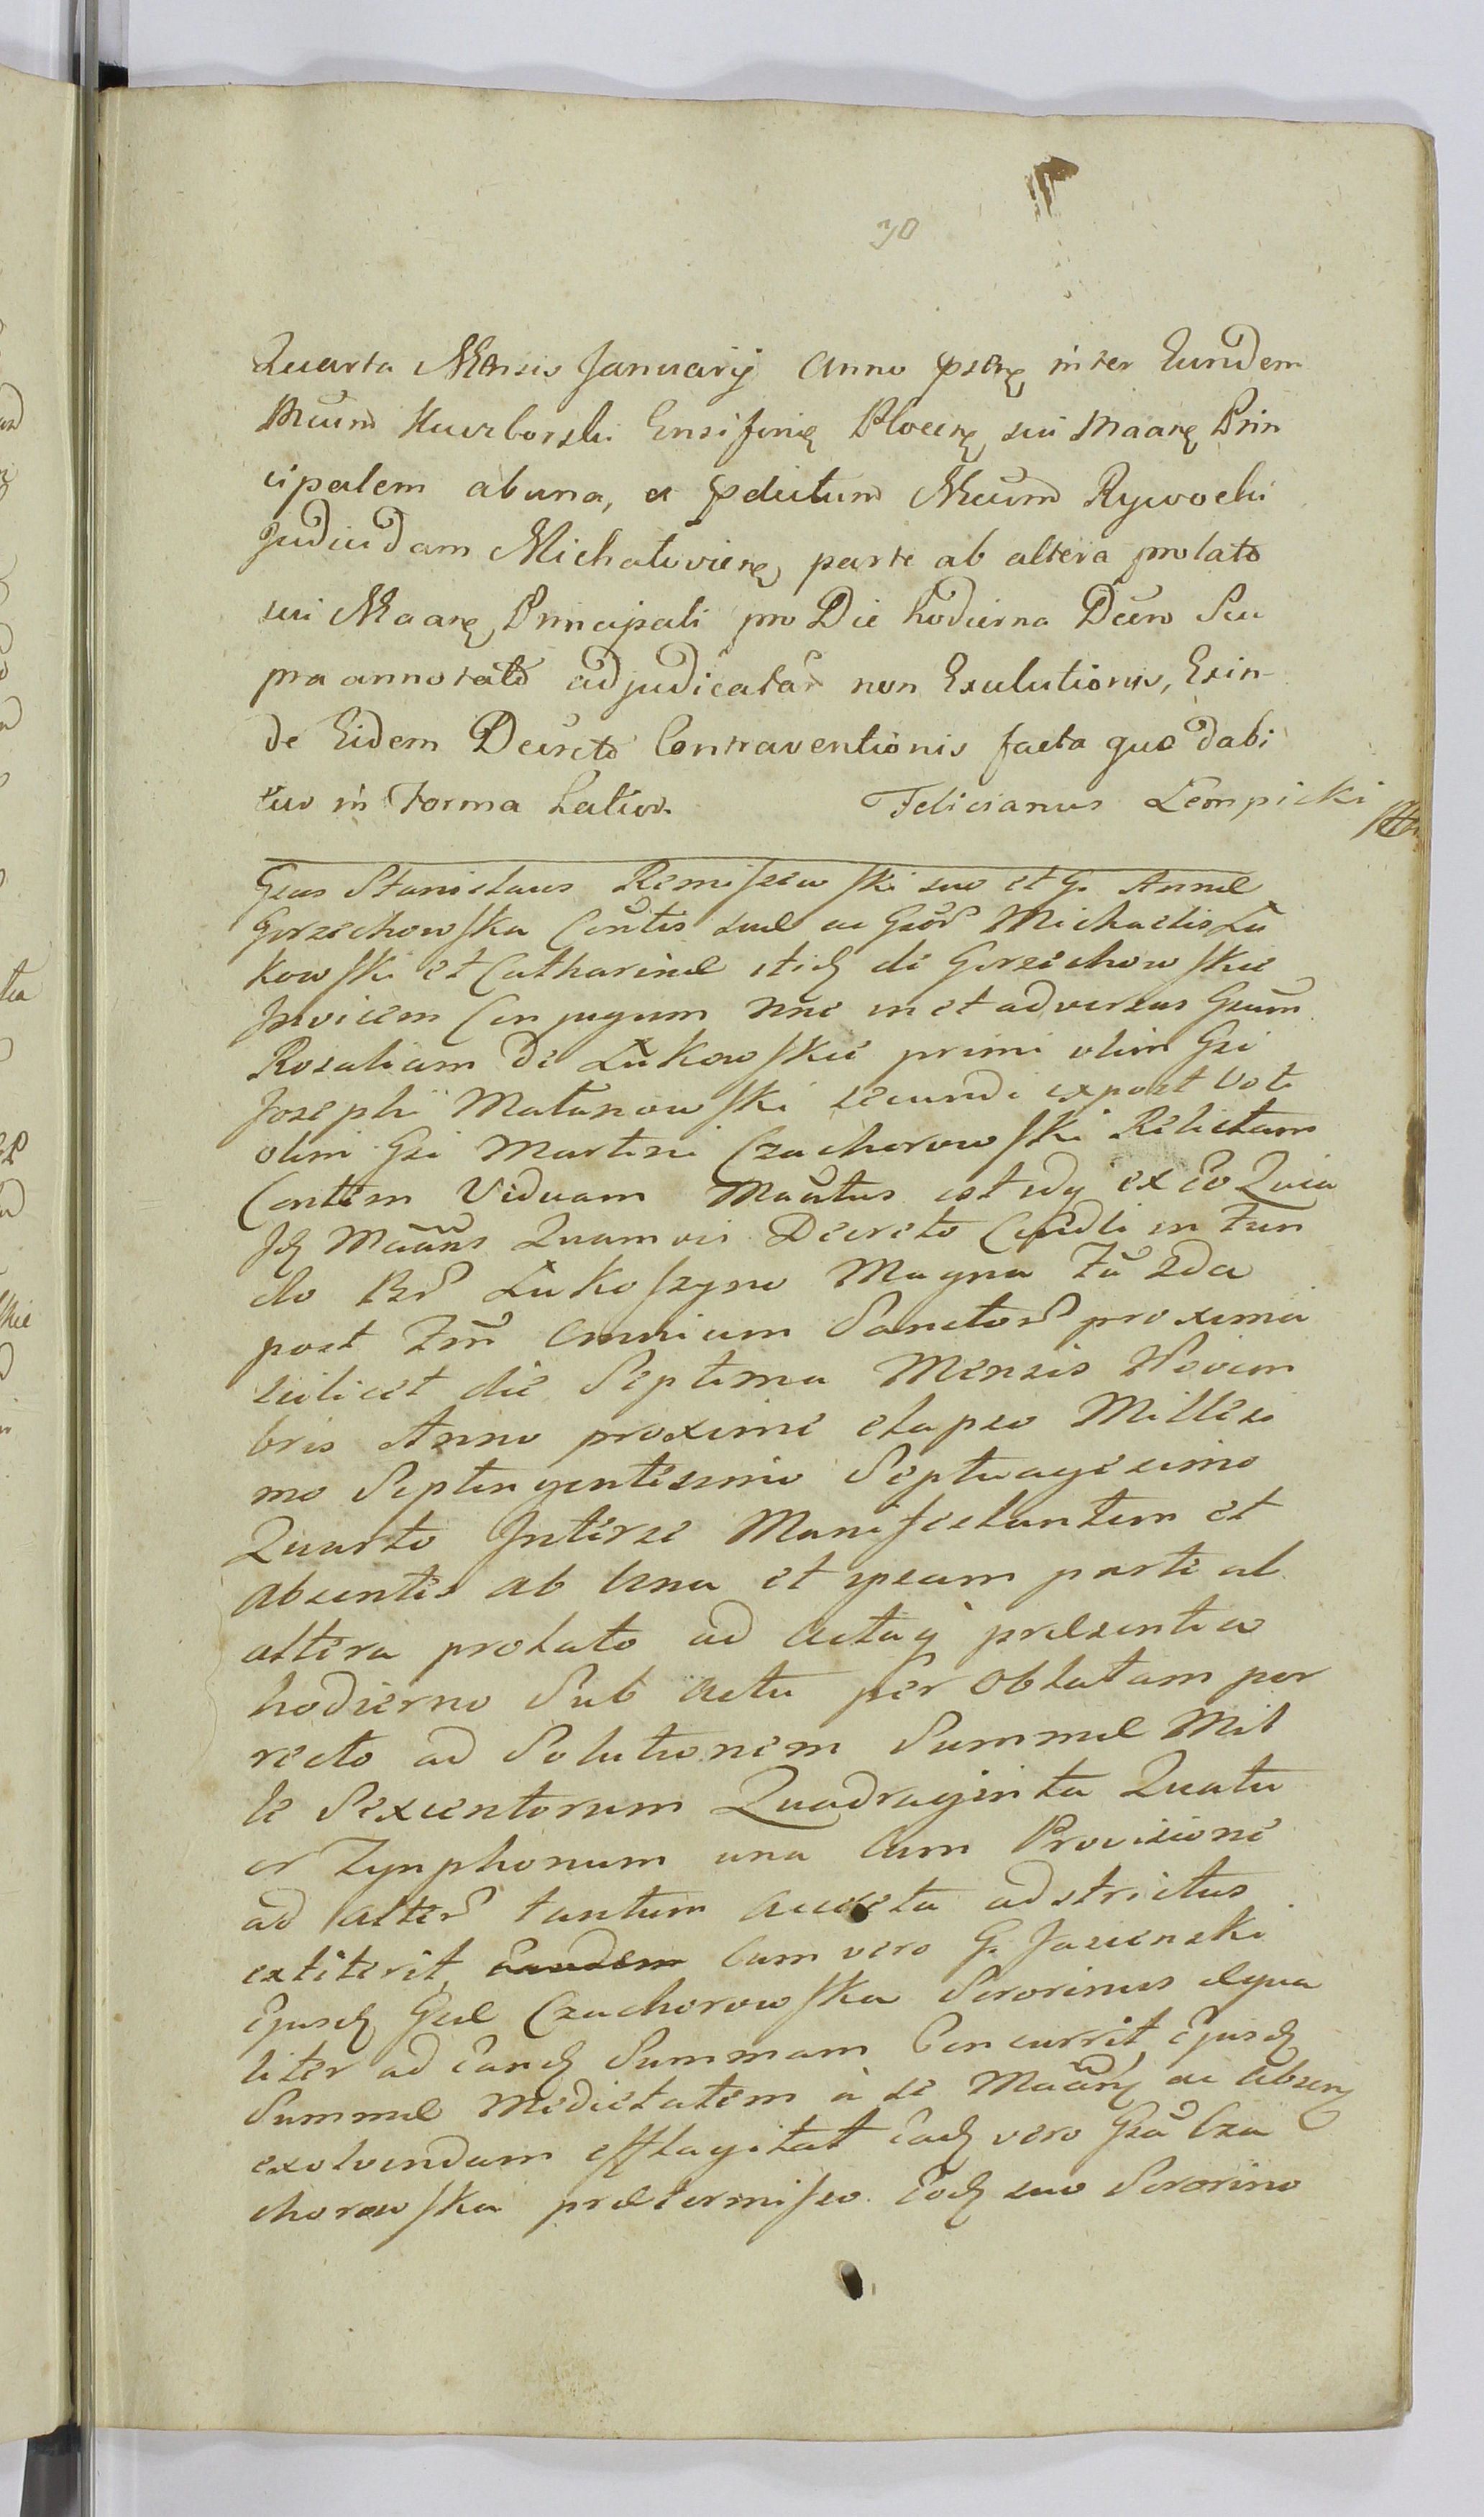 30
Quarta Mensis Januarij Anno psenę inter Eundem
Mcum Kuczborski Ensiferię Plocenę sui Maanę Prin
cipalem ab una, a pdictum Mcum Rywocki
Judicem dam Michalovienę parte ab altera prolato
sui Maanę Principali pro Die hodierna Decro Su
pra annotato adjudicatar non Exulutionis, Exin-
de Eidem Decreto Contraventionis facta quo dabi
tur in Forma Latior. Felicianus Lempicki
Gsus Stanislaus Remiszewski suo et G. Annæ
Gorzechowska Contis suæ ac Gsor Michaelis Łu
kowski et Catharinæ itidę de Gorzechowskie
Invicem Conjugum nne in et adversus Gsam
Rosaliam de Łukowskie primi olim Gsi
Josephi Malanowski secundi expost voti
olim Gsi Martini Czachorowski Relictam
Contem Viduam Maatus est idq ex Eo Quia
Idę Maans Quamvis Decreto Compdli in Fun
do Br Łukoszyno Magna Fa 2da
post Fm Omnium Sanctor proxima
scilicet die Septima Mensis Novem
bris Anno proxime elapso Millesi
mo Septingentesimo Septuagesimo
Quarto Inter se Manifestantem et
absentes ab una et ipsam parte ab
altera prolato ad Actaq præsentia
hodierno Sub actu per Oblatam por
recto ad Solutionem Summæ Mil
le Sexcentorum Quadraginta Quatu
or Tynphonum una Cum Provisione
ad alter tantum aucta adstrictus
extiterit, Eandem Cum vero G. Jasienski
Ejusdę Gsæ Czachorowska Sororinus æqua
liter ad Eandę Summam Concurrit Ejusdę
Summæ Medietatem à se Maanę ac Absenę
exolvendam efflagitat Eadę vero Gsa Cza
chorowska prætermisso Eodę suo Sororino